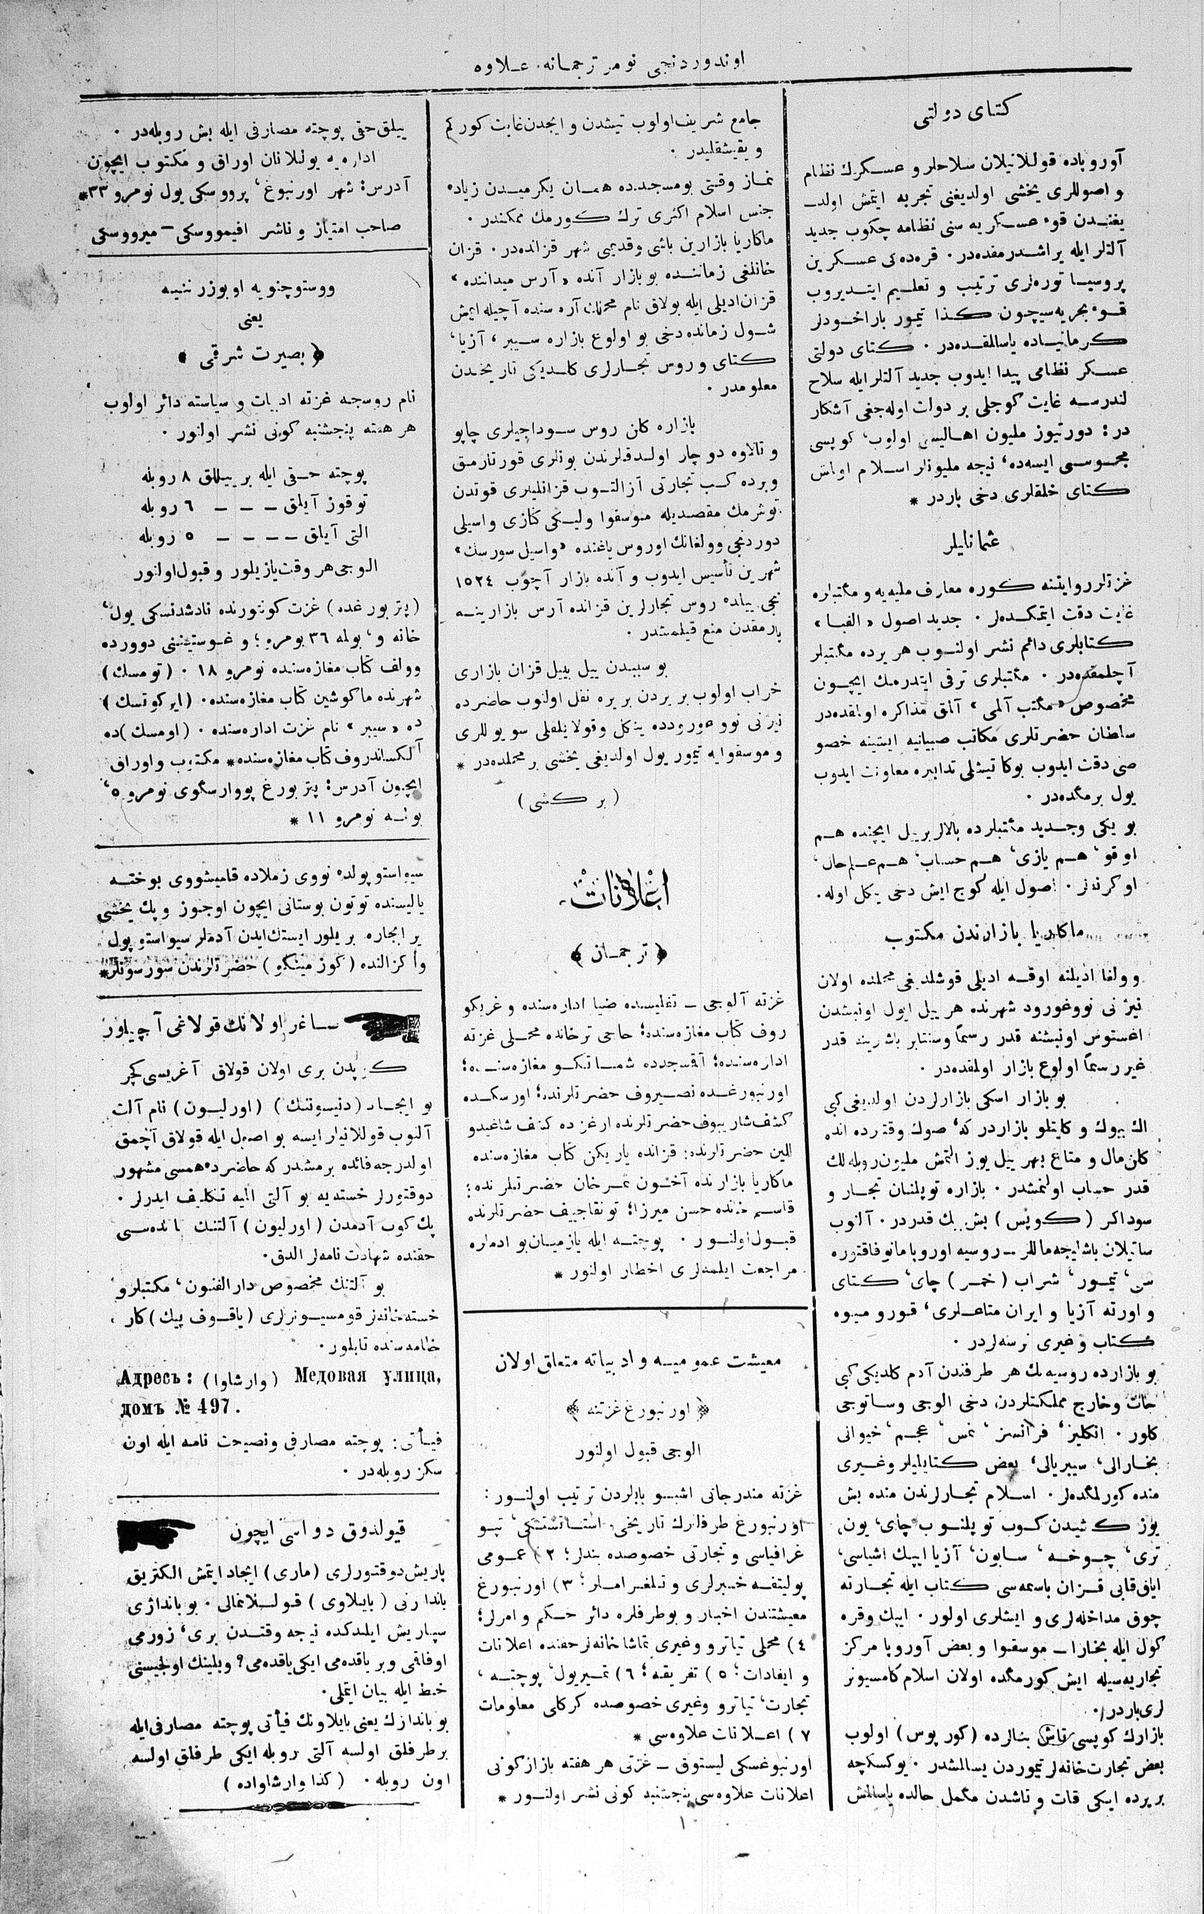 اوندوردنجی نومر ترجمانه علاوه
كتای دولتی
آوروپاده قوللانیلان سلاحلر و عسكرلك نظام
و اصوللری یخشی اولدیغنی تجربه ایتمش اولد‌ـ
یغندن قوۀ عسكریه سنی نظامه چكوب جدید
آلتلر ایله یراشدرمقده‌در. قره‌ده‌كی عسكرین
پروسیا توره‌لری ترتیب و تعلیم ایتدیروب
قوۀ بحریه‌سیچون كذا تیمور باراخودلر
كرمانیاده یاسالمقده‌در. كتای دولتی
عسكر نظامی پیدا ایدوب جدید آلتلر ایله سلاح
لندرسه غایت كوچلی بر دولت اوله‌جغی آشكار
در: دورتیوز ملیون اهالیسی اولوب، كوپسی
مجوسی ایسه‌ده، نیجه ملیونلر اسلام اولمش
كتای خلقلری دخی باردر *
عثمانلیلر
غزتلر روایتنه كوره معارف ملیه‌یه و مكتبلره
غایت دقت ایتمكده‌لر. جدید اصول «الفبا»
كتابلری دائم نشر اولنوب هر یرده مكتبلر
آچلمقده‌در. مكتبلری ترقی ایتدرمك ایچون
مخصوص «مكتب آلمی» آلمق مذاكره اولمقده‌در
سلطان حضرتلری مكاتب صبیانیه ایشینه خصو
صی دقت ایدوب بوكا تیشلی تدابیره معاونت ایدوب
یول برمكده‌در.
بو یكی و جدید مكتبلرده بالالر بر ییل ایچنده هم
اوقو، هم یازی، هم حساب، هم علم حال،
اوكرنه‌لر. اصول ایله كوج ایش دخی ینكل اوله.
ماكاریا بازارندن مكتوب
وولغا ادیلنه اوقه ادیلی قوشلدیغی محلده اولان
نیژنی نووغورود شهرنده هر ییل ایول اونبشندن
اغستوس اونبشنه قدر رسماً و سنتابر باشرینه قدر
غیر رسماً اولوغ بازار اولمقده‌در.
بو بازار اسكی بازارلردن اولدیغی كبی
اڭ بیوك و كایتلو بازاردر كه، صوڭ وقترده انده
كلن مال و متاع بهر ییل یوز التمش ملیون روبله‌لك
قدر حساب اولنمشدر. بازاره توپلنان تجار و
سوداكر (كوپس) بش بیك قدردر. آلنوب
ساتیلان باشلیجه ماللر ـ روسیه اوروپا مانوفاقتوره
سی، تیمور، شراب (خمر) چای، كتای
و اورته آزیا و ایران متاعلری، قورو میوه
كتاب و غیری نرسه‌لردر.
بو بازارده روسیه‌نك هر طرفندن آدم كلدیكی كبی
جات و خارج مملكتلردن دخی الوجی و ساتوجی
كلور. انكلیز، فرانسز، نمس، عجم، خیوالی
بخارالی، سیبریالی، بعض كتایلیلر و غیری
منده كورلمكده‌لر. اسلام تجارلرندن منده بش
یوز كشیدن كوب توپلنوب چای، یون،
تری، چوخه، سابون، آزیا ایپك اشیاسی،
ایاق قابی قزان باسمه‌سی كتاب ایله تجارته
چوق مداخله‌لری و ایشلری اولور. ایپك و قره
كول ایله بخارا ـ موسقوا و بعض آوروپا مركز
تجاریه‌سیله ایش كورمكده اولان اسلام كامسیونر
لری باردر.
بازارك كوپسی تاش بنالرده (كورپوس) اولوب
بعض تجارت‌خانه‌لر تیموردن یسالمشدر. یوكسكچه
بر یرده ایكی قات و تاشدن مكمل حالده یاسالمش
جامع شریف اولوب تیشدن و ایچدن غایت كوركم
و یقیشقلیدر.
نماز وقتی بو مسجدده همان یكرمیدن زیاده
جنس اسلام اكثری ترك كورمك ممكندر.
ماكاریا بازارین باشی و قدیمی شهر قزانده‌در. قزان
خانلغی زماننده بو بازار آنده «آرس میداننده»
قزان ادیلی ایله بولاق نام محلنك آره‌سنده آچیله ایمش
شول زمانده دخی بو اولوغ بازاره سیبر، آزیا،
كتای و روس تجارلری كلدیكی تاریخدن
معلومدر.
بازاره كلن روس سوداچیلری چاپو
و تالاوه دوچار اولدقلرندن بونلری قورتازمق
و برده كسب تجارتی آزالتوب قزانلیلری قوتدن
توشرمك مقصدیله موسقوا ولیكی كنازی واسیلی
دوردنجی وولغانك اوروس یاغنده «واسیل سورسك»
شهرین تأسیس ایدوب و آنده بازار آچوب ١٥٢٤
نجی ییلده روس تجارلرین قزانده آرس بازارینه
بارمقدن منع قیلمشدر.
بو سببدن ییل بییل قزان بازاری
خراب اولوب بر یردن بر یره نقل اولنوب حاضرده
نیژنی نووغورودده ینكل و قولایلقلی سو یوللری
و موسقوایه تیمور یول اولدیغی یخشی بر محلده‌در *
(بر كشی)
اعلانات
﴿ ترجمان ﴾
غزته آلوجی ـ تفلیسده ضیا اداره‌سنده و غریكو
روف كتاب مغازه‌سنده؛ حاجی ترخانده محلی غزته
اداره‌سنده؛ آقمسجدده شماتكو مغازه‌سنده؛
اورنبورغده نصیروف حضرتلرنده؛ اورسكده
الدین حضرتلرنده؛ قزانده یاریكن كتاب مغازه‌سنده
ماكاریا بازارنده آخون عمرخان حضرتلرنده؛
قاسم خانده حسن میرزا؛ توتقاچیف حضرتلرنده
قبول اولنور. پوچته ایله یازمیان بو ادملره
مراجعت ایلمه‌لری اخطار اولنور *
معیشت عمومیه و ادبیاته متعلق اولان
﴿ اورنبورغ غزتنه ﴾
الوجی قبول اولنور
غزته مندرجاتی اشبو بابلردن ترتیب اولنور:
اورنبورغ طرفلرك تاریخی، استاتستكی، تپو
غرافیاسی و تجارتی خصوصده بندلر؛ ٢) عمومی
پولیتقه خبرلری و تلغراملر؛ ٣) اورنبورغ
معیشتندن اخبار و بو طرفلره دائر حكم و امرلر؛
٤) محلی تیاترو و غیری تماشاخانه‌لر حقنده اعلانات
و ایفادات؛ ٥) تفریقه؛ ٦) تمیریول، پوچته،
تجارت، تیاترو و غیری خصوصده كركلی معلومات
٧) اعلانات علاوه‌سی *
اورنبوغسكی لیستوق ـ غزتی هر هفته بازار كونی
اعلانات علاوه‌سی پنجشنبه كونی نشر اولنور *
ییللق حقی پوچته مصارفی ایله بش روبله‌در.
اداره‌یه یوللانان اوراق و مكتوب ایچون
آدرس: شهر اورنبورغ، پرووسكی یول نومرو ٣٣*
صاحب امتیاز و ناشر افیمووسكی ـ میرووسكی
ووستوچنویه اوبوزرنیه
یعنی
﴿ بصیرت شرقی ﴾
نام روسجه غزته ادبیات و سیاسته دائر اولوب
هر هفته پنجشنبه كونی نشر اولنور.
پوچته حقی ایله بر ییللق ٨ روبله
توقوز آیلق ـ ـ ـ ٦ روبله
التی آیلق ـ ـ ـ ـ ٥ روبله
الوجی هر وقت یازیلور و قبول اولنور
(پتربورغده) غزت كونتورنده نادژدنسكی یول،
خانه و، بولمه ٣٦ نومرو؛ و غوستیننی دوورده
وولف كتاب مغازه‌سنده نومرو ١٨. (تومسك)
شهرنده ماكوشین كتاب مغازه‌سنده. (ایركوتسك)
ده «سیبر» نام غزت اداره‌سنده. (اومسك) ده
آلكساندروف كتاب مغازه‌سنده* مكتوب و اوراق
ایچون آدرس: پتربورغ پووارسكوی نومرو ٥،
بولمه نومرو ١١ *
سیواستوپولده نووی زملاده قامیشووی بوخته
یالیسنده توتون بوستانی ایچون اوجوز و پك یخشی
یر ایجاره بریلور ایستك ایدن آدملر سیواستوپول
واكزالنده (كوزمینكو) حضرتلرندن سورسونلر*
ساغر اولانك قولاغی آچیلور
كوپدن بری اولان قولاق آغریسی كچر
بو ایجاد (دنیسوتنك) (اورلیون) نام آلت
آلنوب قوللانیلر ایسه بو اصول ایله قولاق آچمق
اولدرجه فائده برمشدر كه حاضرده همسی مشهور
دوقتورلر خسته‌یه بو آلتی المیه تكلیف ایدرلر.
پك كوب آدمدن (اورلیون) آلتنك فائده‌سی
حقنده شهادت‌نامه‌لر الدق.
بو آلتنك مخصوص دارالفنون، مكتبلر و
خسته‌خانه‌لر قومسیونرلری (یاقوف پیك) كار
خانه‌سنده تابلور.
Адресъ: (وارشاوا) Медовая улица,
домъ № 497.
فیأتی: پوچته مصارفی و نصیحت نامه ایله اون
سكز روبله‌در.
قیولدوق دواسی ایچون
پاریش دوقتورلری (ماری) ایجاد ایتمش الكتریق
باندارنی (بایلاوی) قوللانمالی. بو بانداژی
سپاریش ایلدكده نیجه وقتدن بری، زورمی
اوفاقمی و بر یاقده‌می ایكی یاقده‌می؟ و بلینك اولچیسنی
خط ایله بیان ایتملی.
بو بانداژك یعنی بایلاونك فیأتی پوچته مصارفی ایله
بر طرفلق اولسه آلتی روبله ایكی طرفلق اولسه
اون روبله. (كذا وارشاواده)